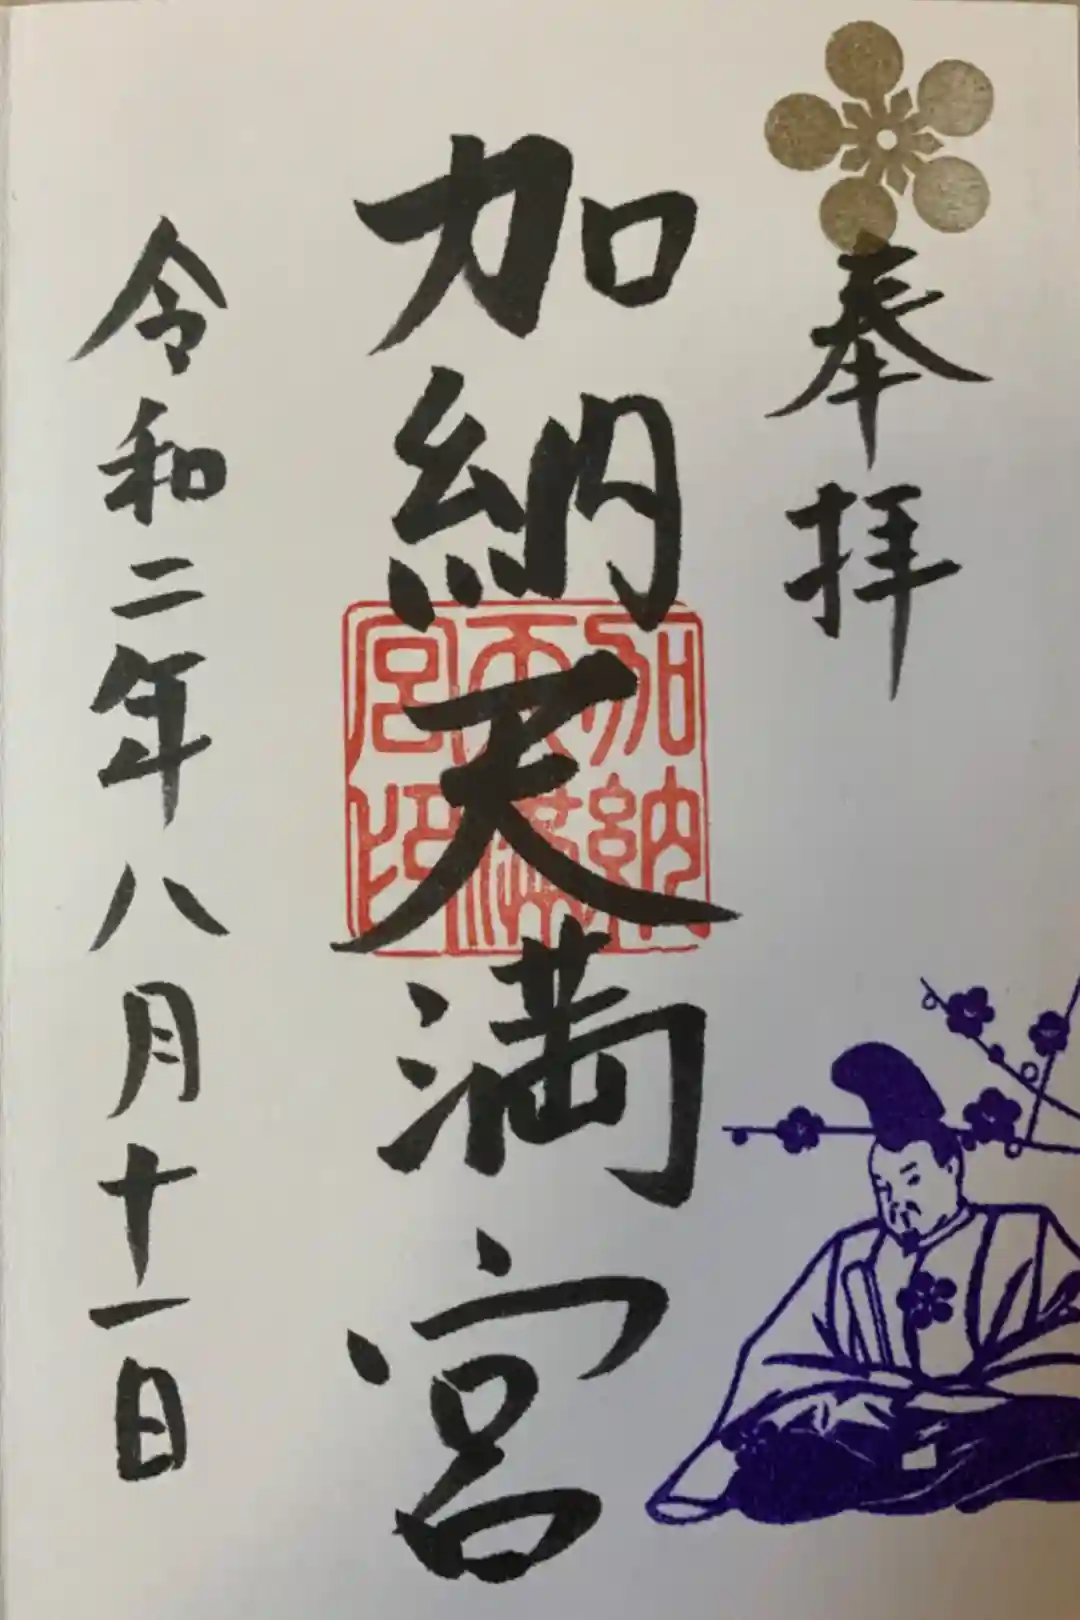 奉拝
加納天満宮
加納
天満
宮印
令和二年八月十一日